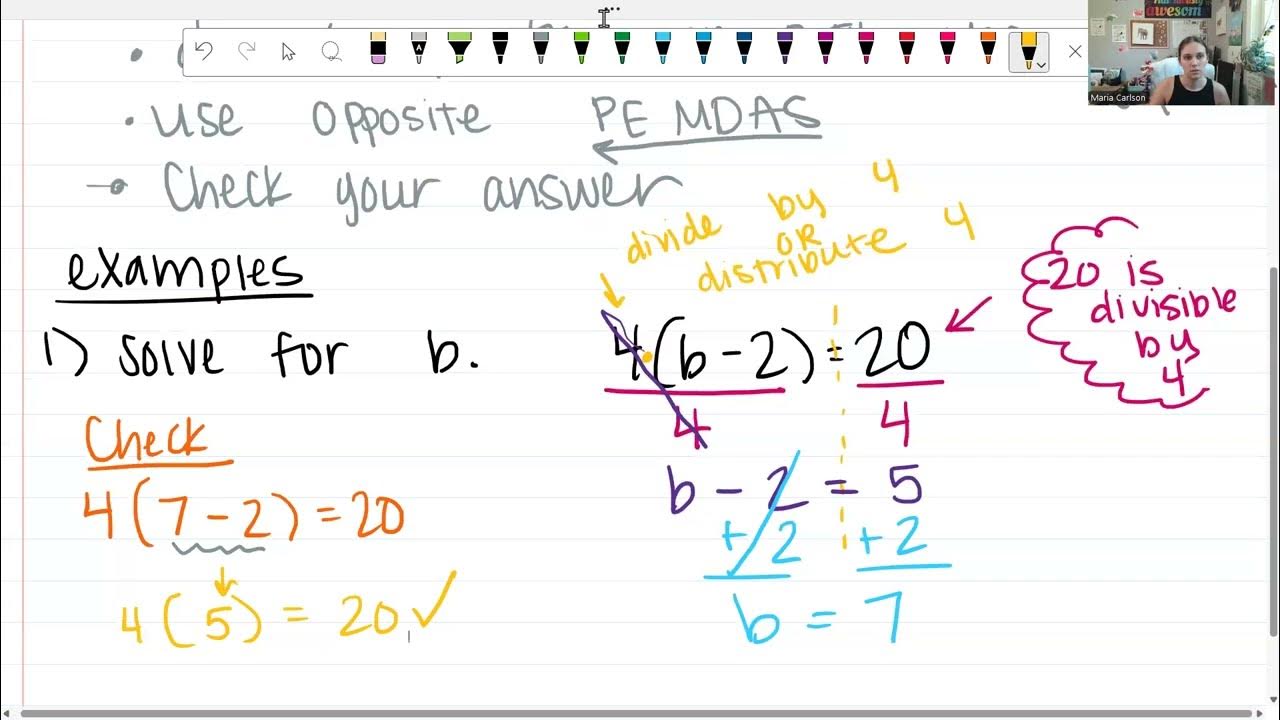 awesome
Maria Carlson
• Use opposite PE MDAS
→ Check your answer
divide by 4
OR
distribute 4
examples
1) Solve for b.
4(b - 2) = 20
4 4
20 is
divisible
by
4
b - 2 = 5
+ 2 + 2
b = 7
Check
4(7 - 2) = 20
4(5) = 20 ✓